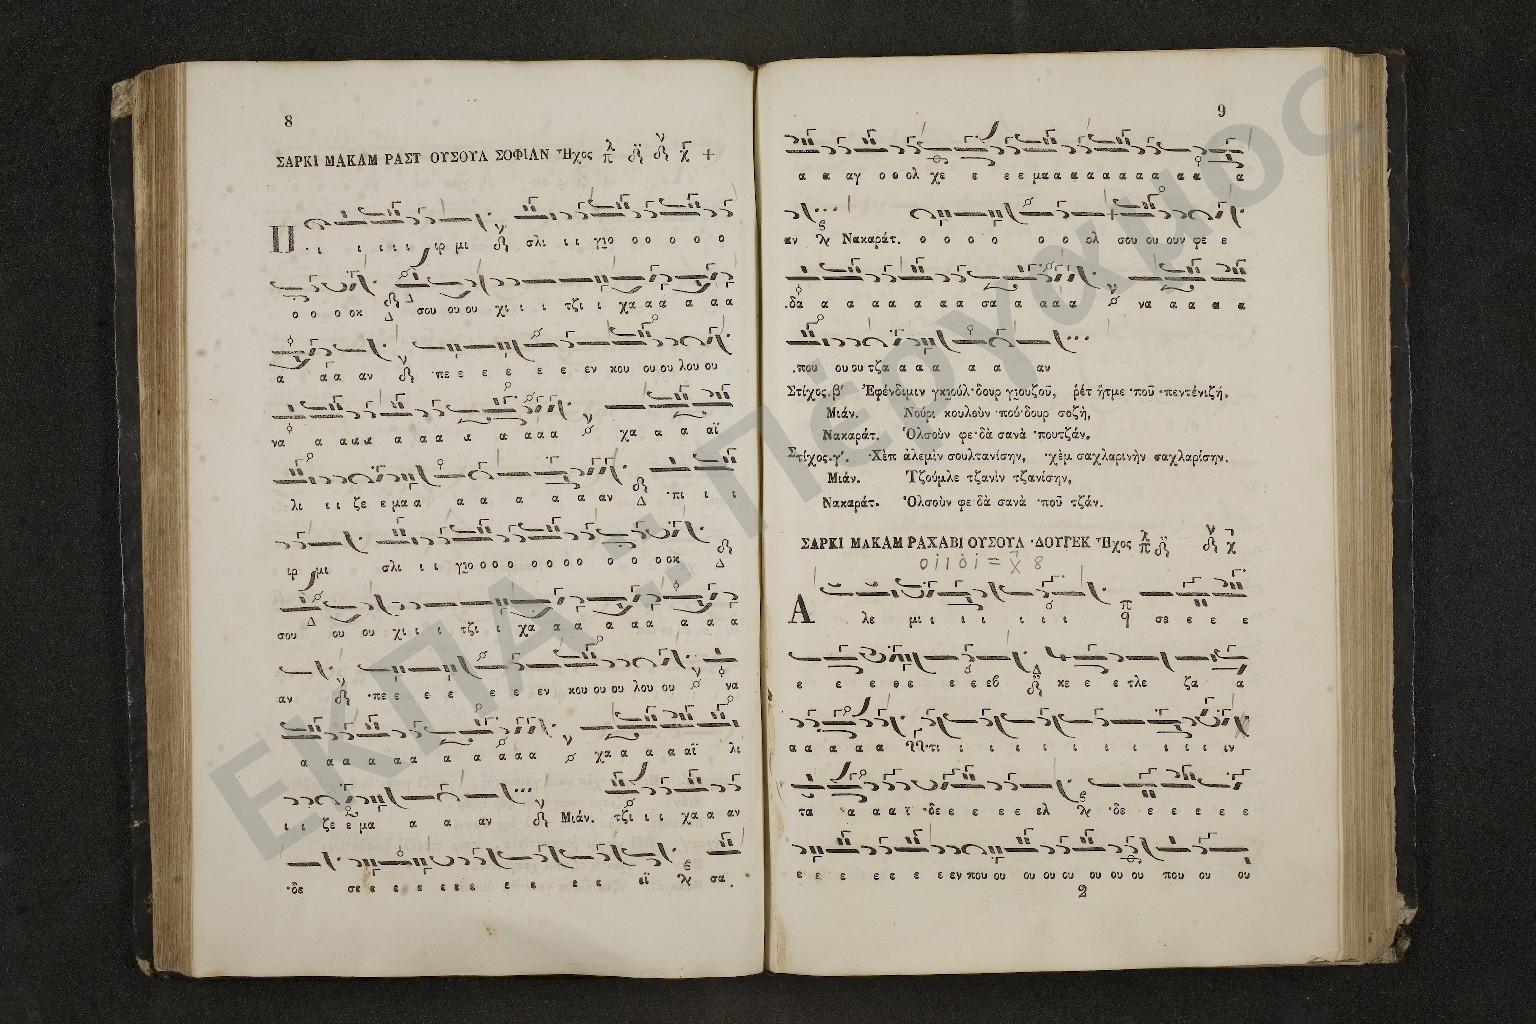 8
ΣΑΡΚΙ ΜΑΚΑΜ ΡΑΣΤ ΟΥΣΟΥΛ ΣΟΦΙΑΝ Ἦχος
ι ι ι ι ι ιρ μι σλι ι ι γιο ο ο ο ο ο
ο ο ο οκ σου ου ου χι ι ι τζι ι χα α α α α α
α α α αν πε ε ε ε ε ε εν κου ου ου λου ου
να α α α α α α α α α α α α χα α α αϊ
λι ι ι ζε ε μα α α α α α α αν πι ι ι
ιρ μι σλι ι ι γιο ο ο ο ο ο ο ο οκ
σου ου ου χι ι ι τζι ι χα α α α α α α α
αν πε ε ε ε ε ε εν κου ου ου λου ου να
α α α α α α α α α α α χα α α α αϊ λι
ι ι ζε ε μα α α αν Μιάν. τζι ι ι χα α αν
δε σε ε ε ε ε ε ε ε ε ε ε εϊ σα
9
α α αγ ο ο ολ χε ε ε ε μα α α α α α α α α α α
αν Νακαράτ. ο ο ο ο ο ο ολ σου ου ουν φε ε
δα α α α α α α α σα α α α α να α α α α
που ου ου τζα α α α α α αν
Στίχος β΄ Ἐφένδιμιν γκιούλ δουρ γιουζοῦ, ῥέτ ἤτμε ποῦ πεντένιζή,
Μιάν. Νούρι κουλοὺν πού δουρ σοζή,
Νακαράτ. Ὀλσοὺν φε δὰ σανὰ πουτζάν.
Στίχος γ΄. Χὲπ ἀλεμὶν σουλτανίσην, χὲμ σαχλαρινὴν σαχλαρίσην.
Μιάν. Τζούμλε τζανὶν τζανίσην,
Νακαράτ. Ὀλσοὺν φε δὰ σανὰ ποῦ τζάν.
ΣΑΡΚΙ ΜΑΚΑΜ ΡΑΧΑΒΙ ΟΥΣΟΥΛ ΔΟΥΓΕΚ Ἦχος
Α λε μι ι ι ι ι ι ι σε ε ε ε
ε ε ε θε ε ε εβ κε ε ε τλε ζα α
α α α α α τι ι ι ι ι ι ι ι ι ι ι ιν
τα α α α ϊ δε ε ε ε ε ελ δε ε ε ε ε ε
ε ε ε ε ε ε ε εν που ου ου ου ου ου ου ου που ου ου
2
ΕΚΠΑ :: Πέργαμος